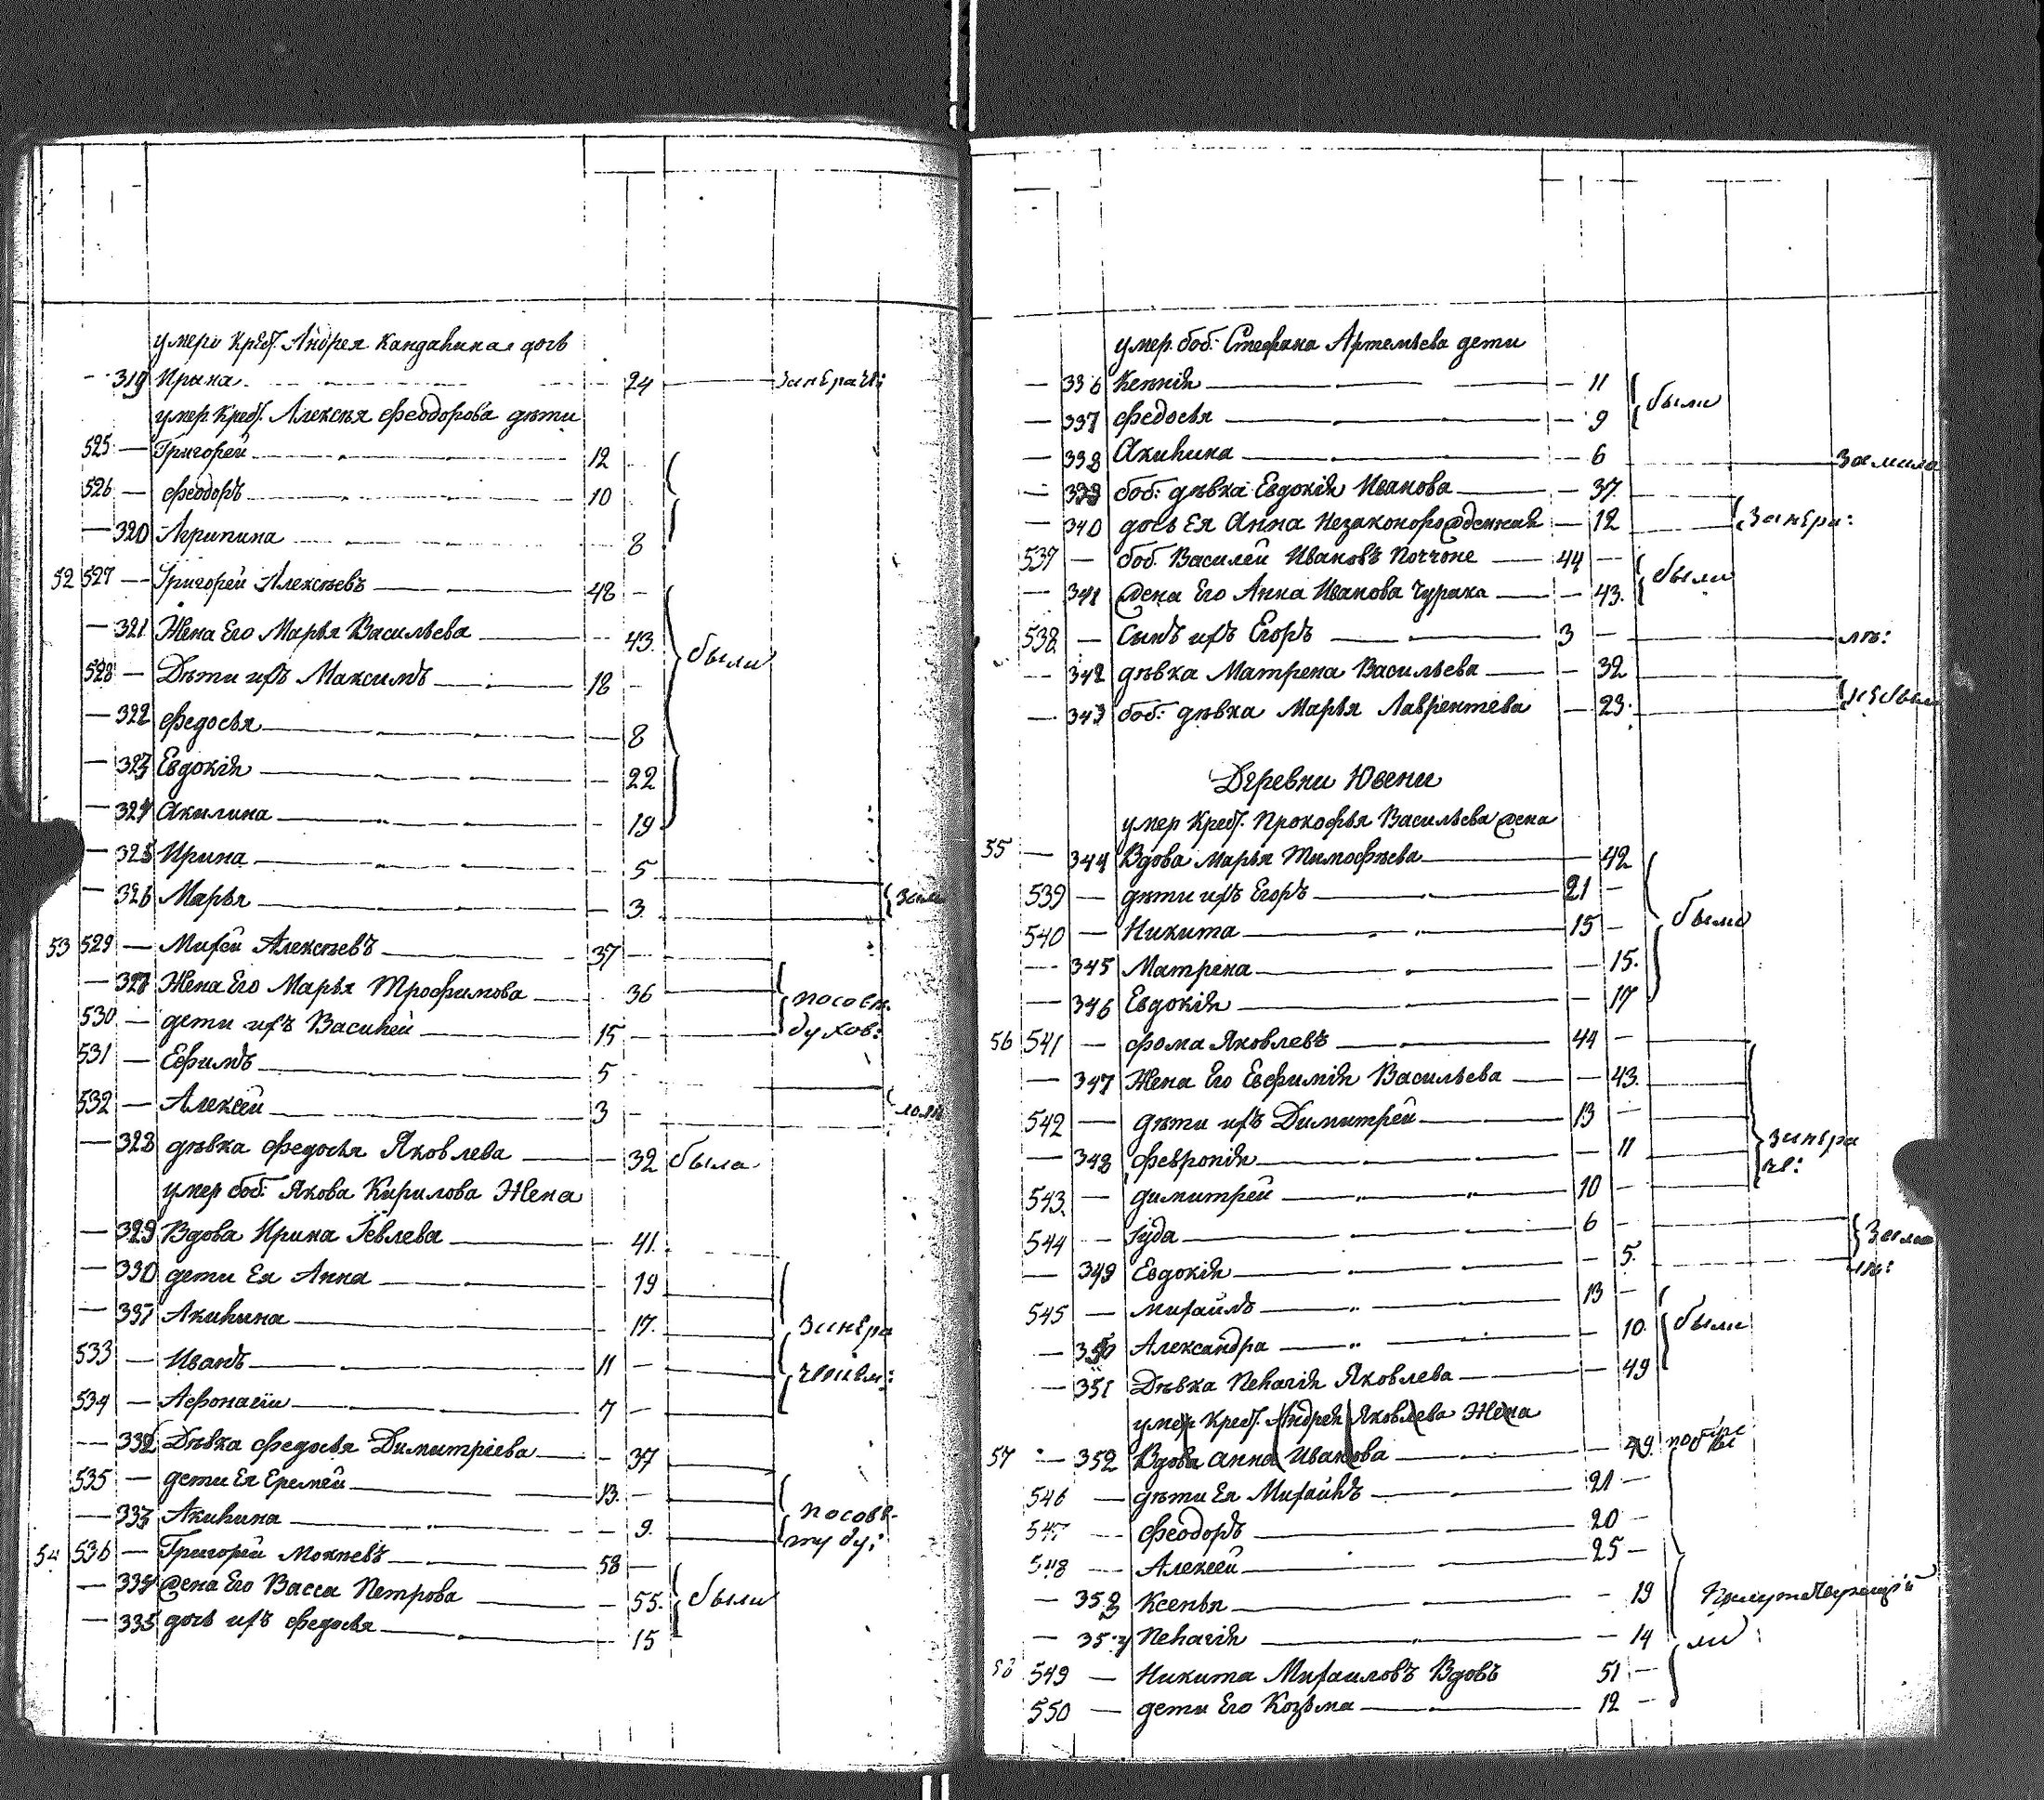 умерш Крест. Андрея Кандакина дочь
— 319 Ирина — 24 — занераче:
умер Крест. Алексѣя Феодорова дѣти
525 — Григорей — 12 —
526 — Феодоръ — 10
— 320 Агрипина — 8
52 527 — Григорей Алексѣевъ — 48 —
— 321 Жена Его Марья Васильева — 43. были
528 — Дѣти ихъ Максимъ — 18 —
— 322 Федосья — 8
— 323 Евдокія — 22
— 324 Акилина — 19
— 325 Ирина — 5
— 326 Марья — 3.
53 529 — Михей Алексѣевъ — 37 —
— 327 Жена Его Марья Трофимова — 36
530 — дети ихъ Василей — 15 — духов:
531 — Ефимъ — 5 —
532 — Алексей — 3 —
— 328 дѣвка Федосья Яковлева — 32 была
умер боб: Якова Кирилова Жена
— 329 Вдова Ирина Іевлева — 41.
— 330 дети Ея Анна — 19
— 331 Акилина — 17. занера
533 — Иванъ — 11 —
534 — Афонасіи — 7 —
— 332 Дѣвка Федосья Димитріева — 37
535 — дети Ея Еремей — 13. —
— 333 Акилина — 9.
54 536 — Григорей Мокиевъ — 58 —
— 334 жена Его Васса Петрова — 55. были
— 335 дочь ихъ Федосья — 15
умер. боб: Стефана Артемьева дети
— 336 Ксенія — 11 были
— 337 Федосья — 9
— 338 Акилина — 6 — замала
— 339 боб: дѣвка Евдокія Иванова — 37.
— 340 дочь Ея Анна Незаконорожденная — 12 занера:
537 — боб. Василей Ивановъ — 44 —
— 341 жена Его Анна Иванова — 43. были
538 — Сынъ ихъ Егоръ — 3 — лѣ:
— 342 дѣвка Матрена Васильева — 32
— 343 боб: дѣвка Марья Лаврентева — 23.
Деревни Ювени
умер Крест. Прокофья Васильева жена
55 — 344 Вдова Марья Тимофѣева — 42
539 — дѣти ихъ Егоръ — 21 —
540 — Никита — 15 — были
— 345 Матрена — 15.
— 346 Евдокія — 17
56 541 — Фома Яковлевъ — 44 —
— 347 Жена Его Евфимія Васильева — 43.
542 — дѣти ихъ Димитрей — 13 —
— 348 Февронія — 11 занера
543. — димитрей — 10 — че:
544 — Іуда — 6 —
— 349 Евдокія — 5.
545 — Михайлъ — 13 —
— 350 Александра — 10. были
— 351 Дѣвка Пелагія Яковлева — 49
умер Крест. Андрея Яковлева Жена
57 — 352 Вдова Анна Иванова — 49.
546 — дѣти Ея Михайлъ — 21 —
547 — Феодоръ — 20 —
548 — Алексей — 25 —
— 353 Ксенья — 19
— 354 Пелагія — 14
58 549 — Никита Михаиловъ Вдовъ 51 —
550 — дети Его Козьма — 12 —